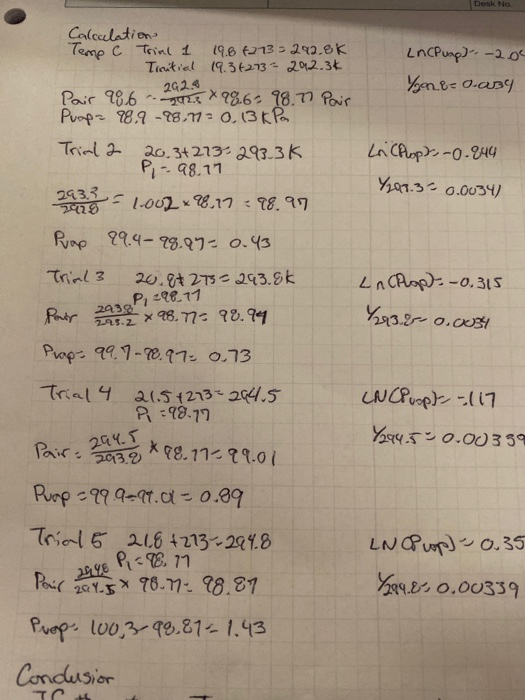 Desk No.
Calculations
Temp C Trial 1 19.8 +273 = 292.8K Ln(Pvap) = -2.04
Initial 19.3+273 = 292.3k 1/292.8 = 0.0034
Pair 98.6 - 292.8/292.3 × 98.6 = 98.77 Pair
Pvap = 98.9 - 98.77 = 0.13 KPa
Trial 2 20.3+273 = 293.3K Ln(Pvap) = -0.844
P1 = 98.77
293.3/292.8 = 1.002 × 98.77 = 98.97 1/293.3 = 0.00341
Pvap 99.4 - 98.97 = 0.43
Trial 3 20.8 + 273 = 293.8k Ln(Pvap) = -0.315
P1 = 98.77
Pair 293.8/293.2 × 98.77 = 98.94 1/293.8 = 0.0034
Pvap = 99.7 - 98.97 = 0.73
Trial 4 21.5 +273 = 294.5 LN(Pvap) = -.117
P1 = 98.77
Pair = 294.5/293.8 × 98.77 = 99.01 1/294.5 = 0.00339
Pvap = 99.9 - 99.01 = 0.89
Trial 5 21.8 +273 = 294.8 LN(Pvap) = 0.35
P1 = 98.77
Pair 294.8/294.5 × 98.77 = 98.87 1/294.8 = 0.00339
Pvap = 100.3 - 98.87 = 1.43
Conclusion